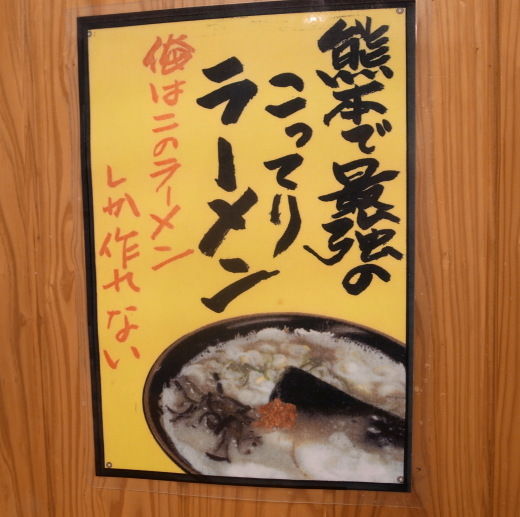 熊本で最強の
こってり
ラーメン
俺はこのラーメン
しか作れない